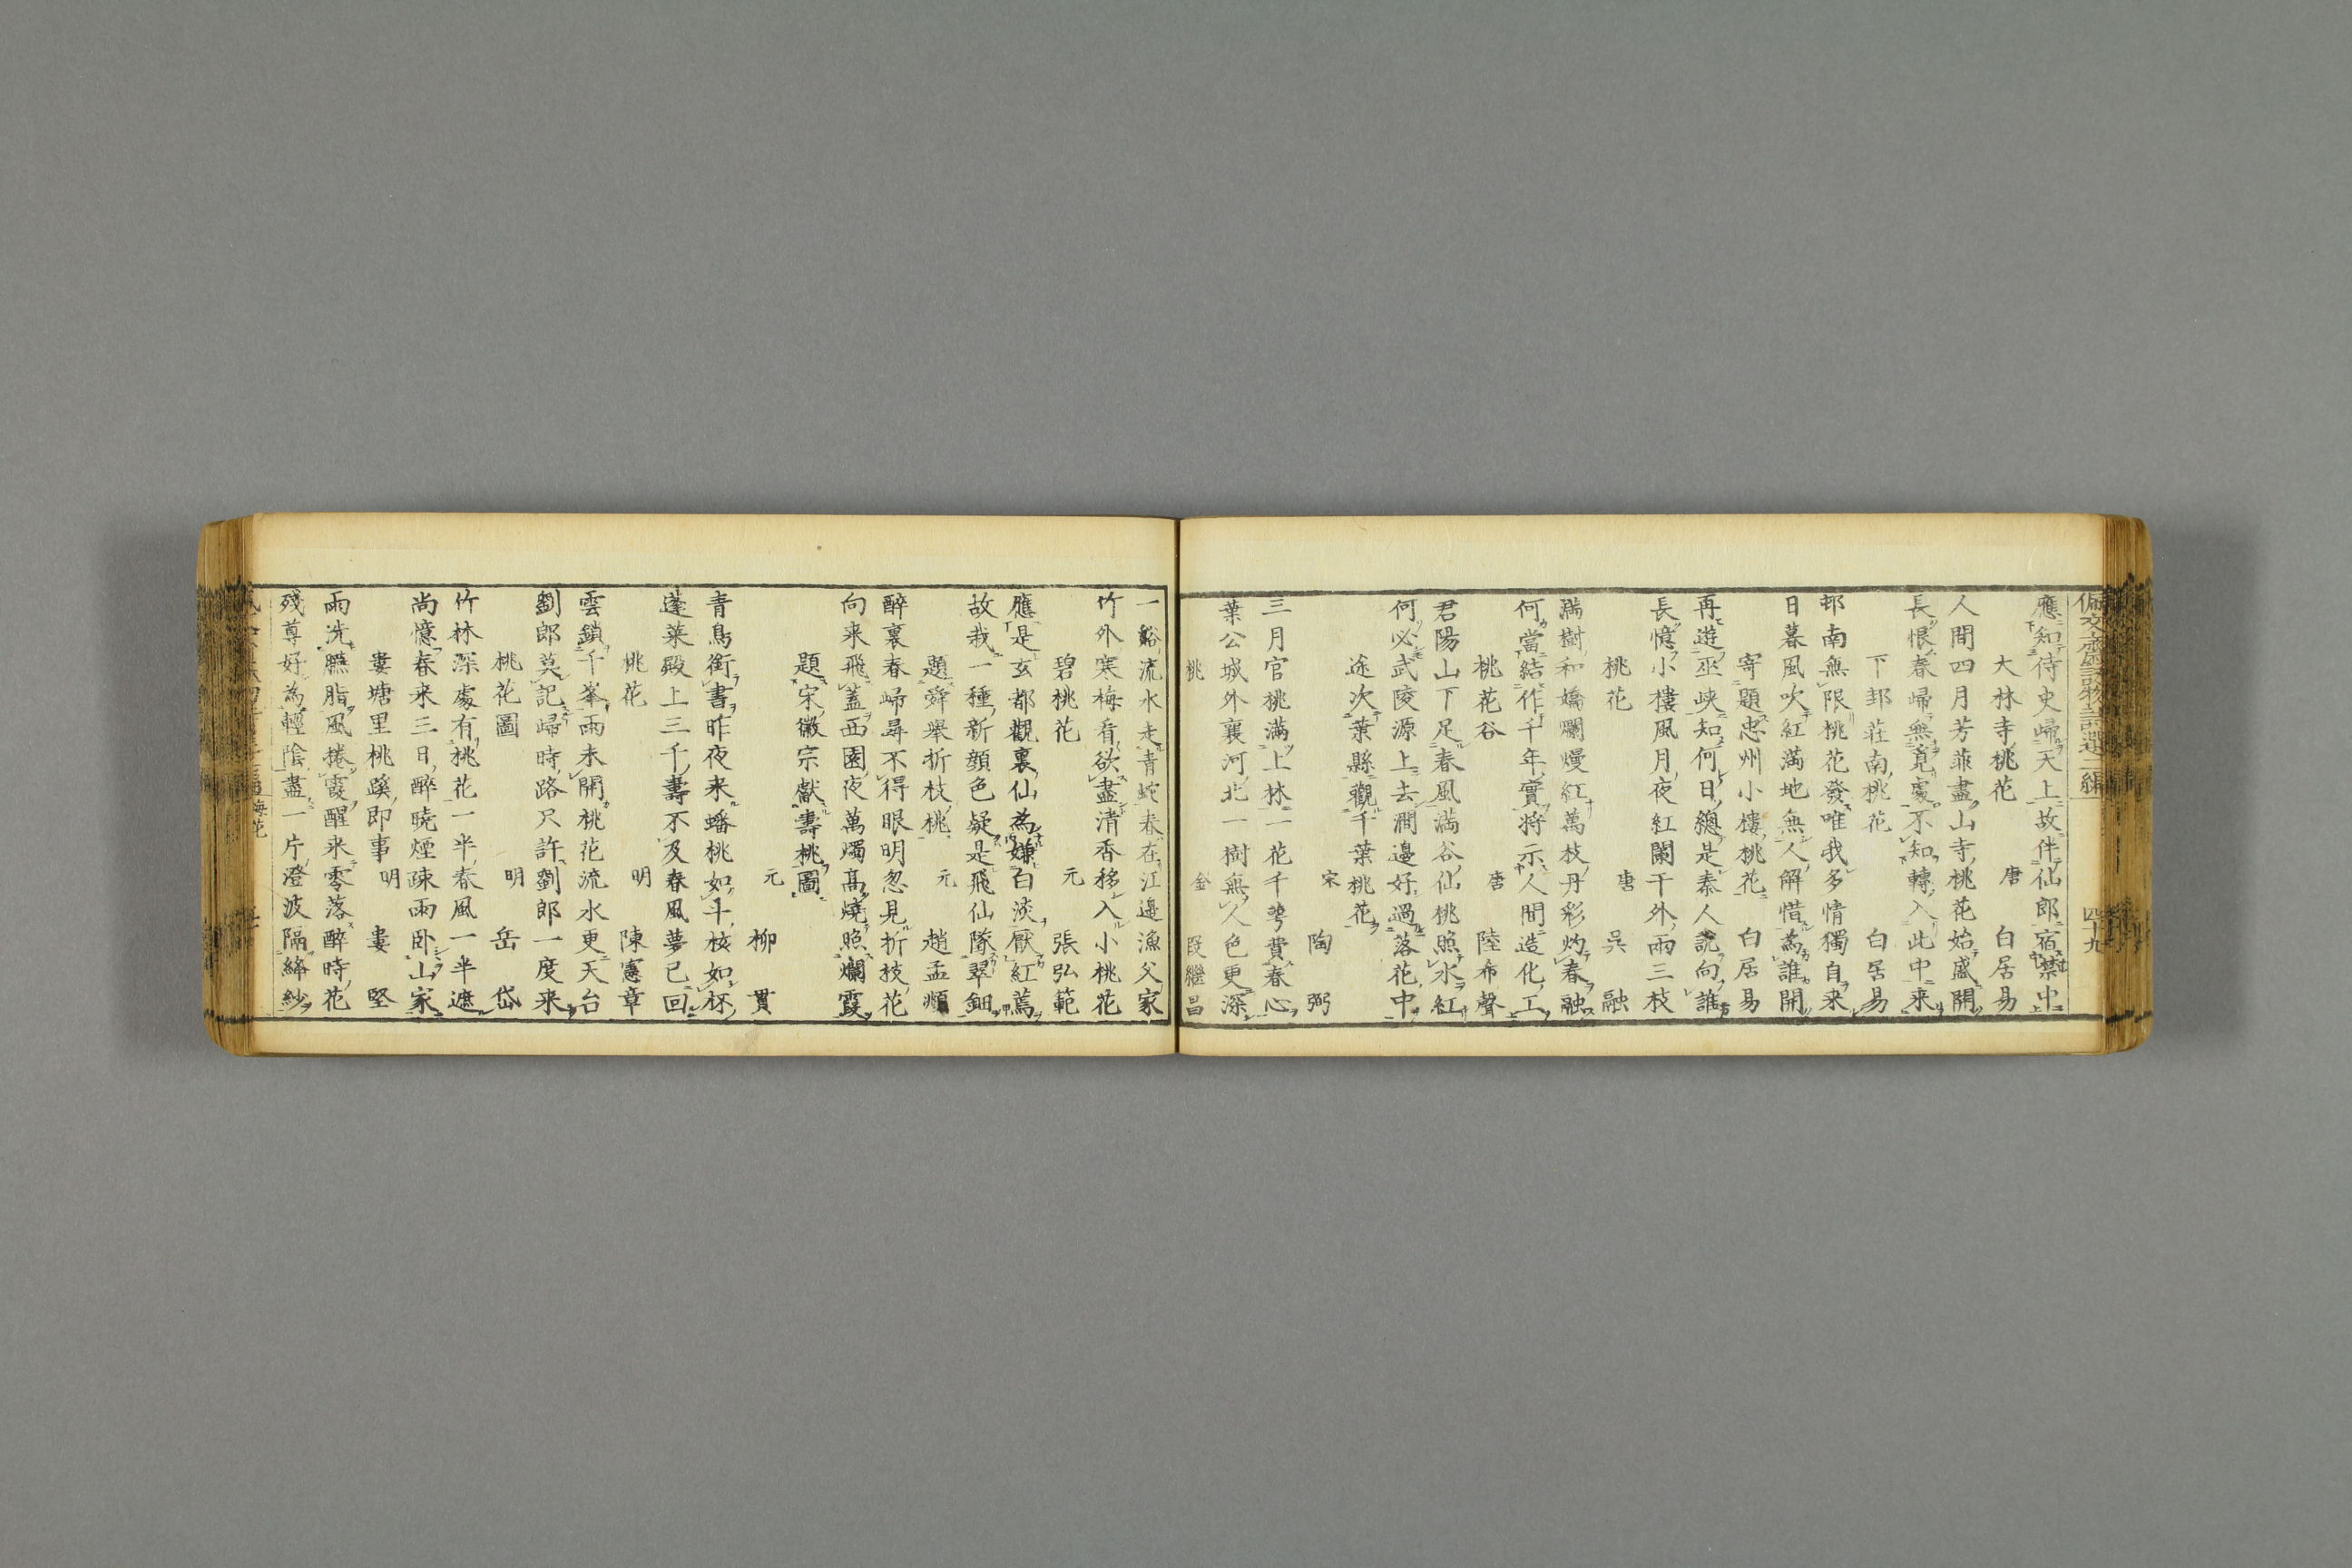 佩文齋詠物詩選二編 四十九
應知侍史歸天上故伴仙郎宿禁中
大林寺桃花 唐 白居易
人間四月芳菲盡山寺桃花始盛開
長恨春歸無覓處不知轉入此中来
下邽莊南桃花 白居易
邨南無限桃花發唯我多情獨自来
日暮風吹紅満地無人解惜為誰開
寄題忠州小樓桃花 白居易
再遊巫峡知何日總是秦人說向誰
長憶小樓風月夜紅闌干外兩三枝
桃花 唐 吳融
満樹和嬌爛熳紅萬枝丹彩灼春融
何當結作千年實将示人間造化工
桃花谷 唐 陸希聲
君陽山下足春風満谷仙桃照水紅
何必武陵源上去澗邊好過落花中
途次葉縣觀千葉桃花
宋 陶弼
三月官桃満上林一花千萼費春心
葉公城外襄河北一樹無人色更深
桃 金 段繼昌
一谿流水走青蛇春在江邊漁父家
竹外寒梅看欲盡清香移入小桃花
碧桃花 元 張弘範
應是玄都觀裏仙為嫌白淡厭紅蔫
故栽一種新顔色疑是飛仙墜翠鈿
題舜舉折枝桃 元 趙孟頫
醉裏春歸尋不得眼明忽見折枝花
向来飛蓋西園夜萬燭高燒照爛霞
題宋徽宗獻壽桃圖
元 柳貫
青鳥銜書昨夜来蟠桃如斗核如杯
蓬莱殿上三千壽不及春風夢已回
桃花 明 陳憲章
雲鎖千峯雨未開桃花流水更天台
劉郎莫記歸時路尺許劉郎一度来
桃花圖 明 岳岱
竹林深處有桃花一半春風一半遮
尚憶春来三日醉曉煙疎雨卧山家
婁塘里桃蹊即事 明 婁堅
雨洗臙脂風捲霞醒来零落醉時花
殘尊好為輕陰盡一片澄波隔絳紗